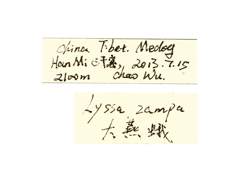 China Tibet. Medog
HanMi 汗密, 2013.7.15
2100m Chao Wu.
Lyssa zampa
大燕蛾